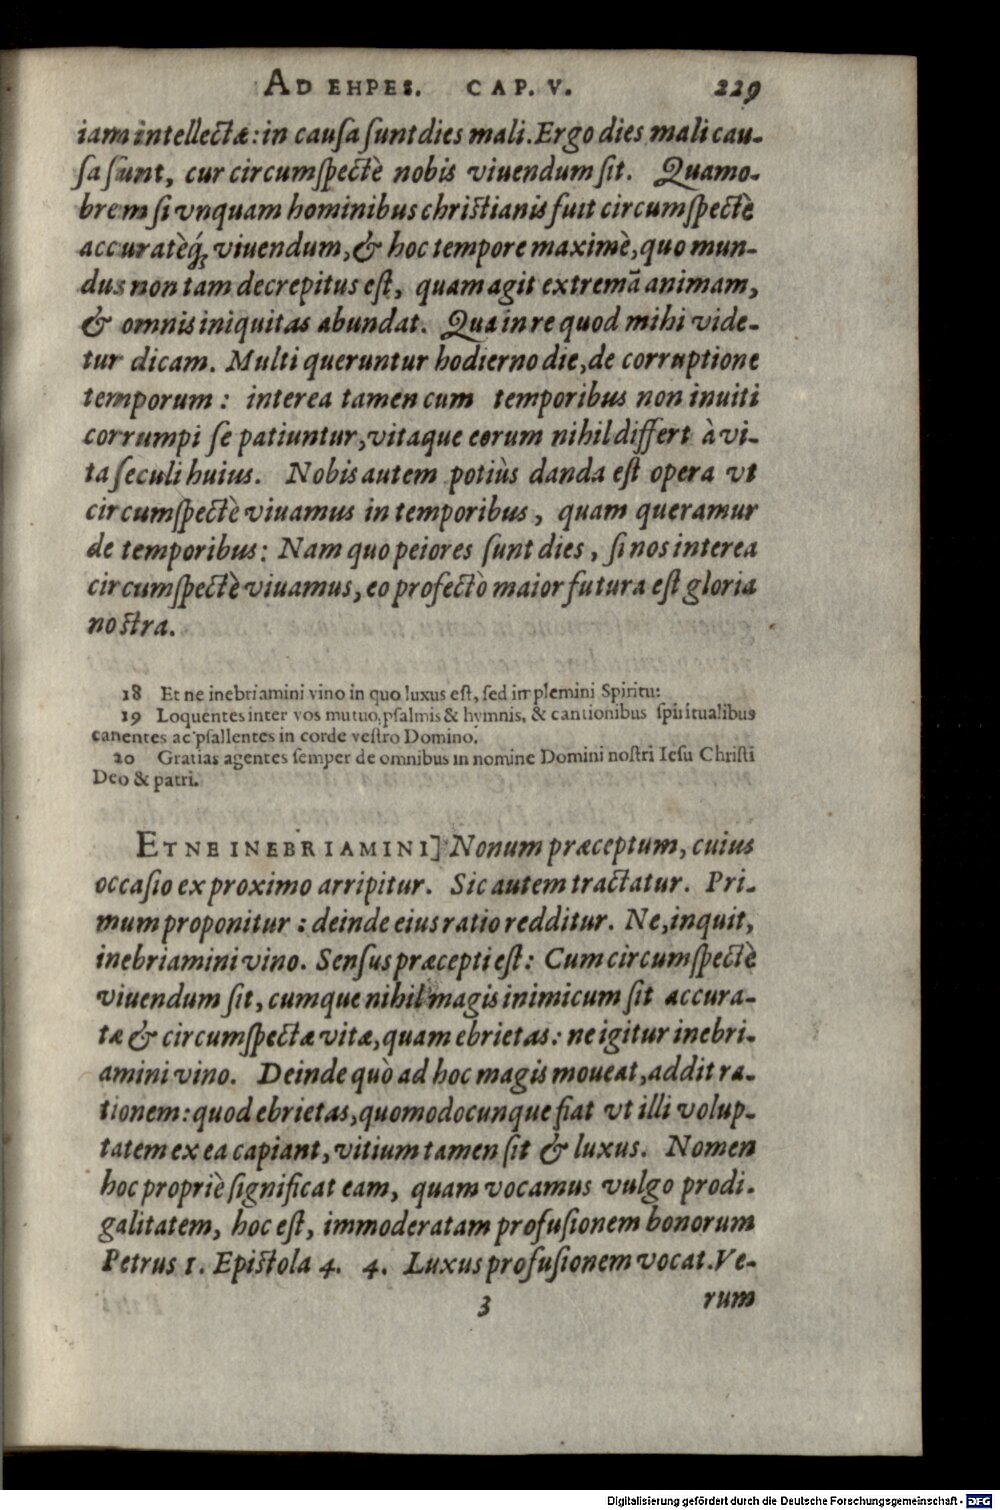 AD EHPES. CAP. V. 229
iam intellectæ: in causa sunt dies mali. Ergo dies mali cau-
sa sunt, cur circumspectè nobis viuendum sit. Quamo-
brem si vnquam hominibus christianis fuit circumspectè
accuratèq́; viuendum, & hoc tempore maximè, quo mun-
dus non tam decrepitus est, quam agit extremā animam,
& omnis iniquitas abundat. Qua in re quod mihi vide-
tur dicam. Multi queruntur hodierno die, de corruptione
temporum: interea tamen cum temporibus non inuiti
corrumpi se patiuntur, vitaque eorum nihil differt à vi-
ta seculi huius. Nobis autem potiùs danda est opera vt
circumspectè viuamus in temporibus, quam queramur
de temporibus: Nam quo peiores sunt dies, si nos interea
circumspectè viuamus, eo profectò maior futura est gloria
nostra.
18 Et ne inebriamini vino in quo luxus est, sed implemini Spiritu:
19 Loquentes inter vos mutuo, psalmis & hymnis, & cantionibus spiritualibus
canentes ac psallentes in corde vestro Domino.
20 Gratias agentes semper de omnibus in nomine Domini nostri Iesu Christi
Deo & patri.
ET NE INEBRIAMINI] Nonum præceptum, cuius
occasio ex proximo arripitur. Sic autem tractatur. Pri-
mum proponitur: deinde eius ratio redditur. Ne, inquit,
inebriamini vino. Sensus præcepti est: Cum circumspectè
viuendum sit, cumque nihil magis inimicum sit accura-
tæ & circumspectæ vitæ, quam ebrietas: ne igitur inebri-
amini vino. Deinde quò ad hoc magis moueat, addit ra-
tionem: quod ebrietas, quomodocunque fiat vt illi volup-
tatem ex ea capiant, vitium tamen sit & luxus. Nomen
hoc propriè significat eam, quam vocamus vulgo prodi-
galitatem, hoc est, immoderatam profusionem bonorum
Petrus 1. Epistola 4. 4. Luxus profusionem vocat. Ve-
3 rum
Digitalisierung gefördert durch die Deutsche Forschungsgemeinschaft - DFG